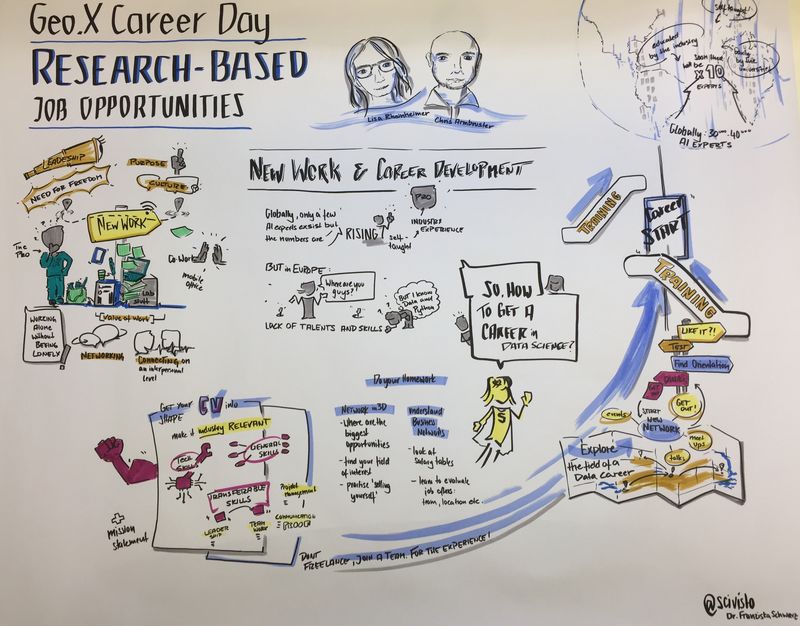 Geo.X Career Day
RESEARCH-BASED
JOB OPPORTUNITIES
Lisa Rheinheimer
Chris Armbruster
self-taught
educated
by the industry
by the
universities
Soon there
will be
x 10
EXPERTS
Globally: 30
AI EXPERTS
LEADESHIP
NEED FOR FREEDOM
PURPOSE
CULTURE
NEW WORK
The PRO
Co Work
mobile
office
Lab
stuff
Value of Work
WORKING
Alone
Without
BEEING
LONELY
NETWORKING
CONNECTING on
an interpersonal
level
NEW WORK & CAREER DEVELOPMENT
Globally, only a few
AI experts exsist but
the numbers are
RISING
self-
taught
PRO
INDUSTRY
EXPERIENCE
BUT in EUROPE:
Where are you
guys?!
But I know
Data and
Python
LACK OF TALENTS AND SKILLS
SO, HOW
TO GET A
CAREER in
DATA SCIENCE?
TRAINING
Career
START
TRAINING
LIKE IT?!
TEST
Find Orientation
GET OUT!
events
START
NEW
NETWORK
meet
ups
talks
Explore
the field of a
Data Career
GET YOUR
CV into
SHAPE
make it industry RELEVANT
TECH
SKILLS
GENERAL
SKILLS
TRANSFERABLE
SKILLS
LEADER
SHIP
TEAM
WORK
Project
management
COMMUNICATION
+
Mission
statement
Do your Homework
NETWORK in 3D
- where are the
biggest
opportunities
- find your field
of interest
- practise 'selling
yourself'
understand
Business
Networks
- look at
salary tables
- learn to evaluate
job offers:
team, location etc.
S
DONT
FREELANCE, JOIN A TEAM. FOR THE EXPERIENCE!
@scivisto
Dr. Franziska Schwarz